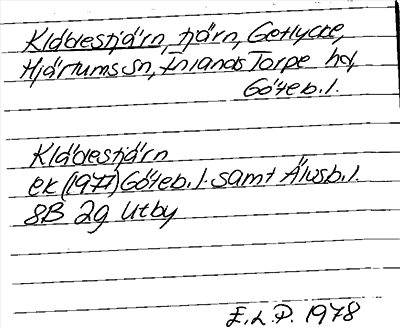 Klädestjärn, tjärn, Getlycke,
Hjärtums sn, Inlands Torpe hd,
Göteb.l.
Klädestjärn
ek (1977) Göteb.l. samt Älvsb.l.
8B 2g Utby
E.L.P. 1978